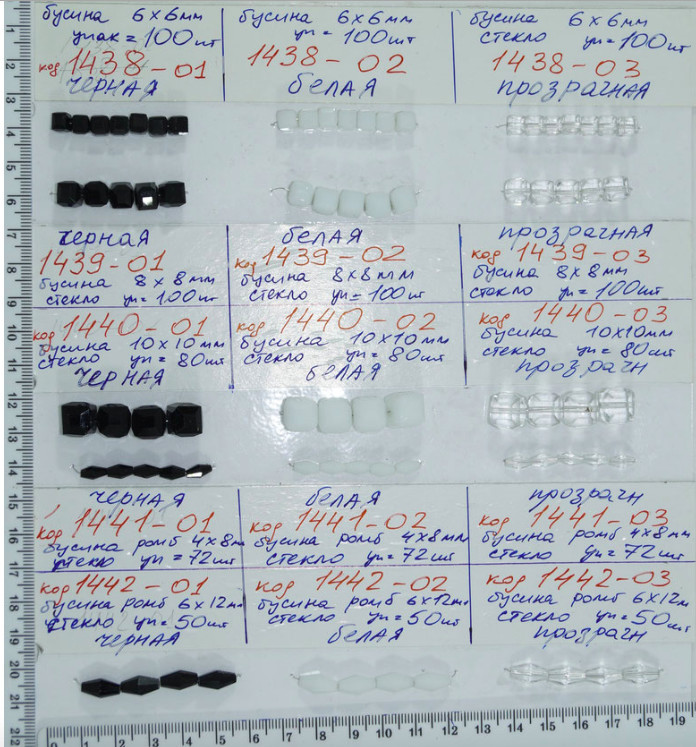 бусина 6×6мм
упак = 100 шт
код 1438-01
ЧЕРНАЯ
бусина 6×6мм
уп = 100шт
1438-02
БЕЛАЯ
бусина 6×6мм
стекло уп = 100 шт
1438-03
ПРОЗРАЧНАЯ
ЧЕРНАЯ
1439-01
бусина 8×8мм
стекло уп = 100шт
БЕЛАЯ
код 1439-02
бусина 8×8мм
стекло уп = 100шт
ПРОЗРАЧНАЯ
код 1439-03
бусина 8×8мм
стекло уп = 100шт
код 1440-01
бусина 10×10мм
стекло уп = 80шт
ЧЕРНАЯ
код 1440-02
бусина 10×10мм
стекло уп = 80шт
БЕЛАЯ
код 1440-03
бусина 10×10мм
стекло уп = 80шт
ПРОЗРАЧН
ЧЕРНАЯ
код 1441-01
бусина ромб 4×8мм
стекло уп = 72шт
БЕЛАЯ
код 1441-02
бусина ромб 4×8мм
стекло уп = 72шт
ПРОЗРАЧН
код 1441-03
бусина ромб 4×8м
стекло уп = 72шт
код 1442-01
бусина ромб 6×12м
стекло уп = 50шт
ЧЕРНАЯ
код 1442-02
бусина ромб 6×12м
стекло уп = 50шт
БЕЛАЯ
код 1442-03
бусина ромб 6×12м
стекло уп = 50шт
ПРОЗРАЧН
1
2
3
4
5
6
7
8
9
10
11
12
13
14
15
16
17
18
19
20
21
22
0 1 2 3 4 5 6 7 8 9 10 11 12 13 14 15 16 17 18 19